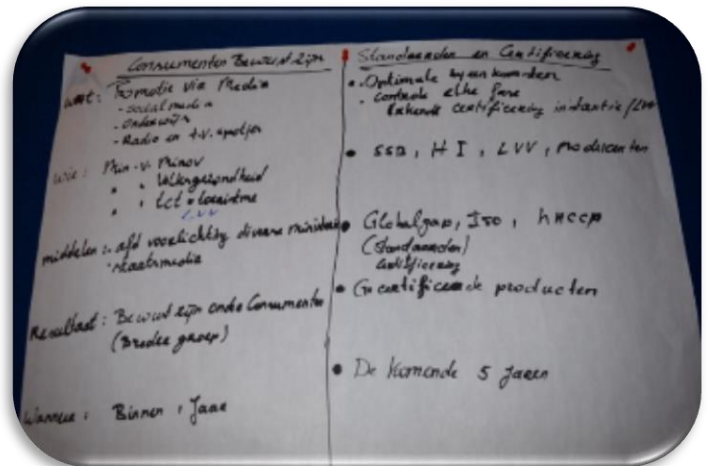 Consumenten Bewustzijn
wat: Promotie via Media
- Social media
- Onderwijs
- Radio en t.v. spotjes
wie: Min. v.
" " Volksgezondheid
" "
LVV
middelen: afd voorlichting diverse
- staatsmedia
Resultaat: Bewust zijn onder Consumenten
(Brede groep)
Wanneer: Binnen 1 Jaar
Standaarden en Certificering
• Optimale
- controle elke fase
Erkende certificering instantie / LVV
• SSB, HI, LVV, Producenten
• Globalgap, Iso, haccp
(Standaarden)
Certificering
• Gecertificeerde producten
• De Komende 5 Jaren